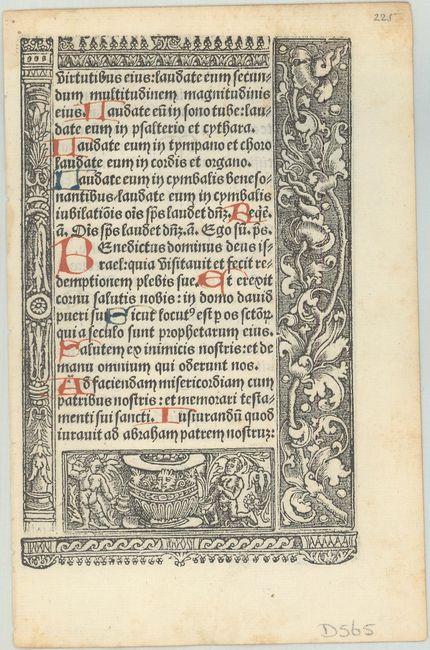 225
virtutibus eius: laudate eum secun-
dum multitudinem magnitudinis
eius. Laudate eū in sono tube: lau-
date eum in psalterio et cythara.
Laudate eum in tympano et choro
laudate eum in cordis et organo.
Laudate eum in cymbalis beneso-
nantibus: laudate eum in cymbalis
iubilatiōis oīs sp̄s laudet dn̄ʒ. Req̄ē.
ā. Oīs sp̄s laudet dn̄ʒ. ā. Ego sū. p̄s.
BEnedictus dominus deus is-
rael: quia visitauit et fecit re-
demptionem plebis sue. Et erexit
cornu salutis nobis: in domo dauid
pueri sui. Sicut locutꝰ est p os sctōꝝ
qui a seculo sunt prophetarum eius.
Salutem ex inimicis nostris: et de
manu omnium qui oderunt nos.
Ad faciendam misericordiam cum
patribus nostris: et memorari testa-
menti sui sancti. Iusiurandū quod
iurauit ad abraham patrem nostruʒ:
D565